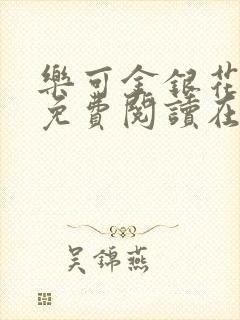 樂可金銀花
免費閱讀在
吴錦燕